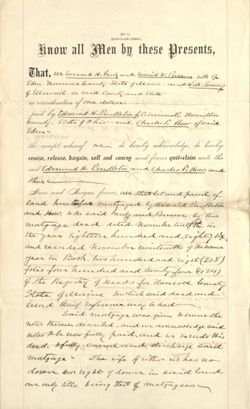 Know all Men by these Presents,
That, we
Eden Hancock County State of Maine and
of Ellsworth in said County and State
in consideration of one dollar
paid by Edmund H. Pendleton of Cincinnati, Hamilton
County, State of Ohio and Charles F. How of said
Eden
the receipt whereof we do hereby acknowledge, do hereby
remise, release, bargain, sell and convey and forever quit-claim unto the
said Edmund H. Pendleton and Charles F. How, and
their
Heirs and Assigns forever, all that lot and parcel of
land heretofore mortgaged by the said Pendleton
and How, to the said and by this
mortgage deed dated November in
the year eighteen hundred and eighty six
and recorded November nineteenth of the same
year in Book two hundred and eight (208)
folio four hundred and twenty four (424)
of the Registry of Deeds for Hancock County
State of Maine to which said deed and
record thereof reference may be had
Said mortgage was given to secure the
notes therein described, and we acknowledge said
notes to be now fully paid, and in
deed to fully cancel and discharge said
mortgage - The wife of either of us has no
dower or right of dower in said land
our only title being that of mortgagees